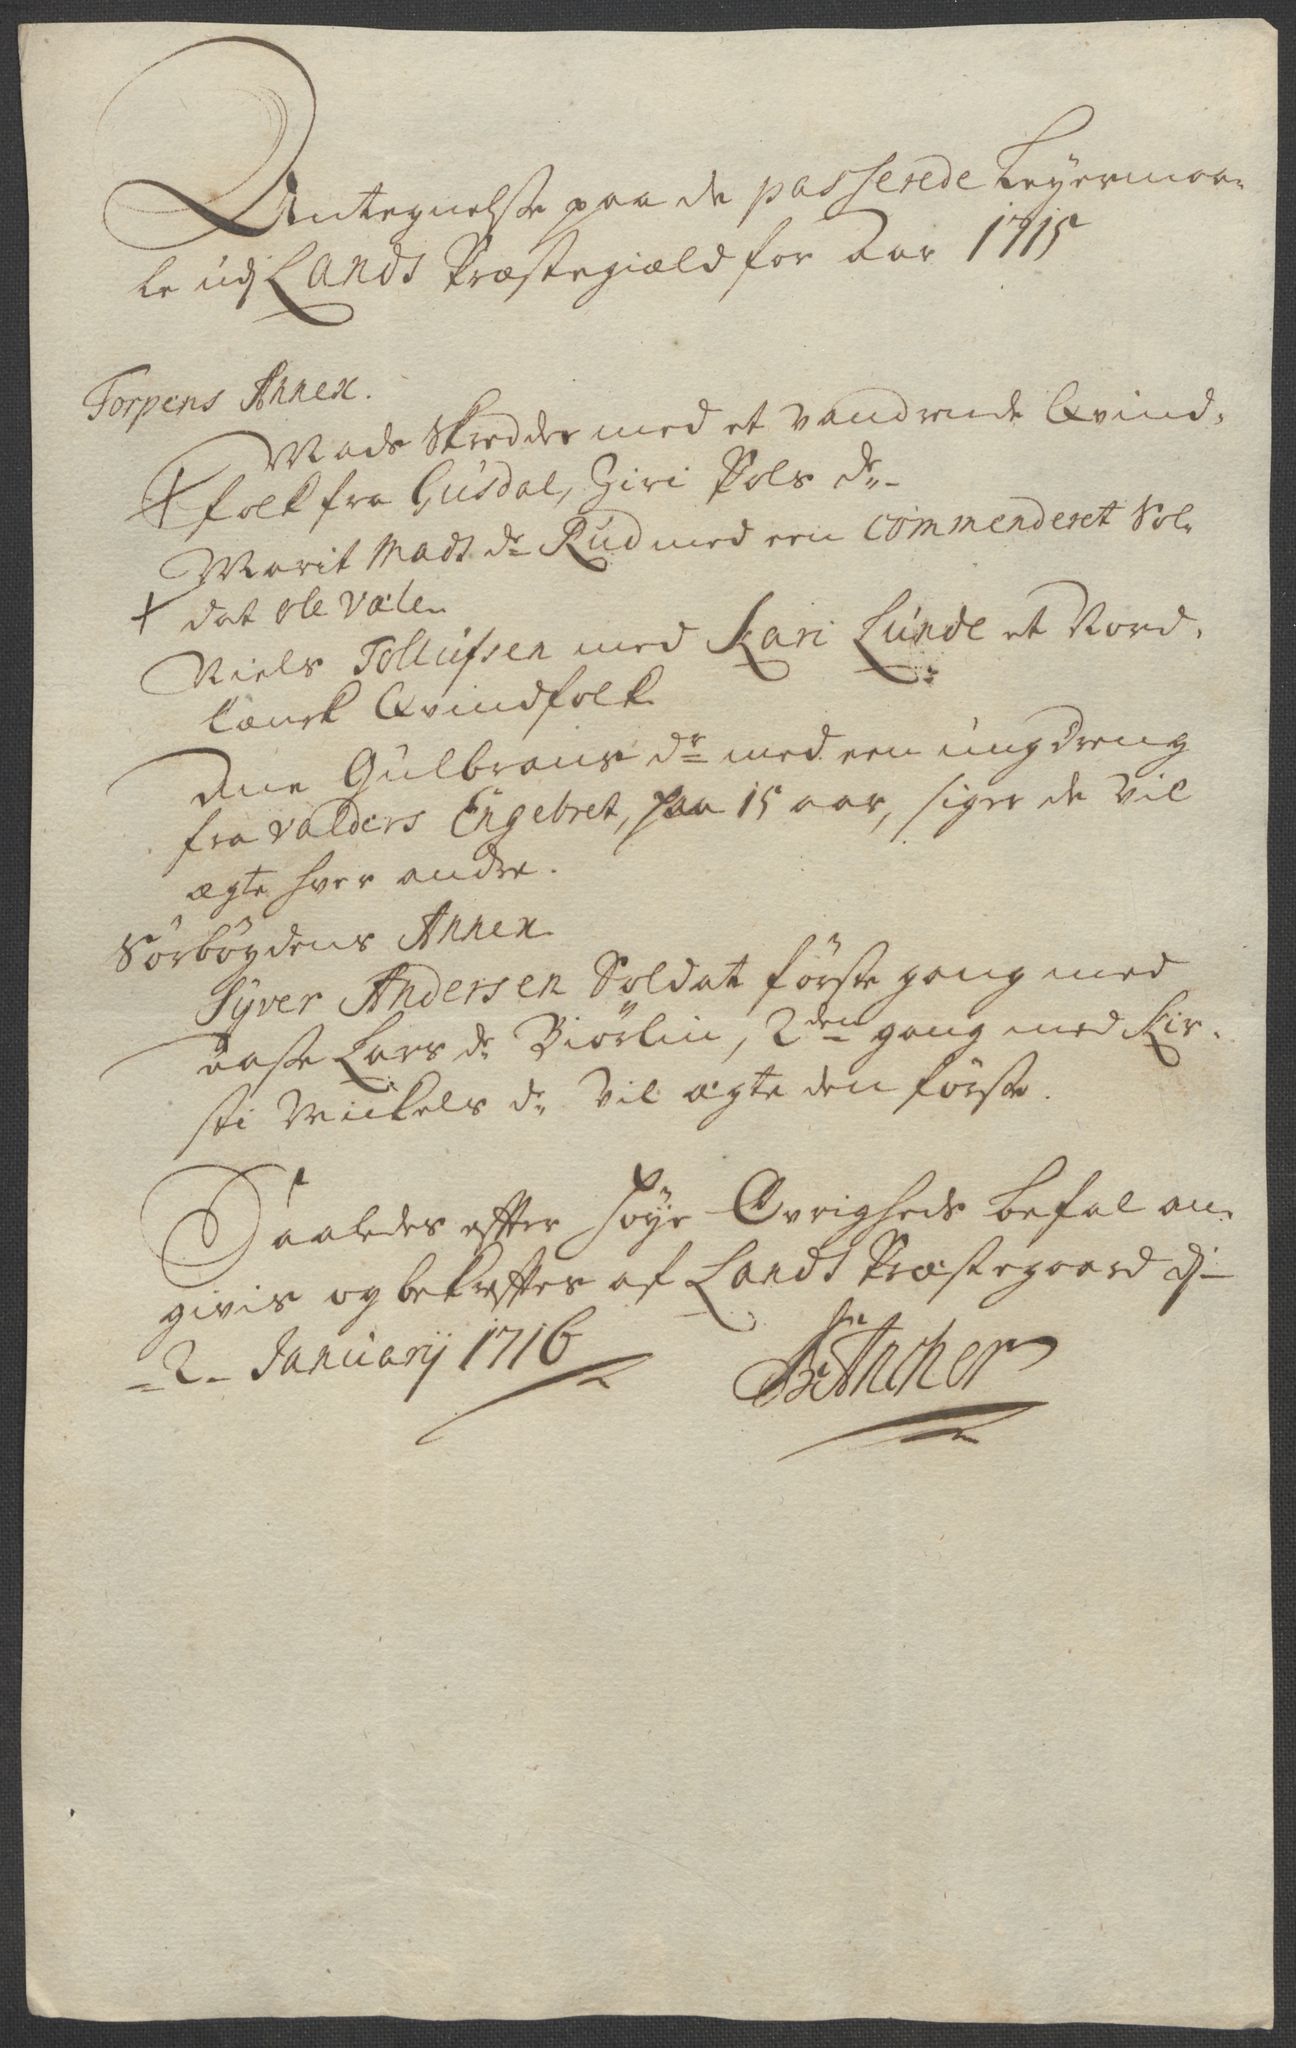 Antegnelse paa de passerede Leyermaa-
le udj Lands Præstegiæld for Aar 1715
Torpens Annex.
Mads Skredder med et vandrende Qvind-
+ folk fra Gusdal, Giri Pols dr.
Marit Mads dr Rud med een commenderet Sol-
+ dat Ole Vale.
Niels Tollufsen med Kari Lunde et Nord-
lansk Qvindfolk
Ane Gulbrans dr med een ung dreng
fra Valders Engebret, paa 15 aar, siger de vil
ægte hver andre.
Sørbøgdens Annex
Syver Andersen Soldat første gang med
Aase Lars dr Biørlin, 2den gang med Kir-
sti Mickels dr vil ægte den første.
Saaledes effter høye Øvrigheds befal an-
givis og bekrefftes af Lands Præstegaard dj
2 January 1716
Ancher